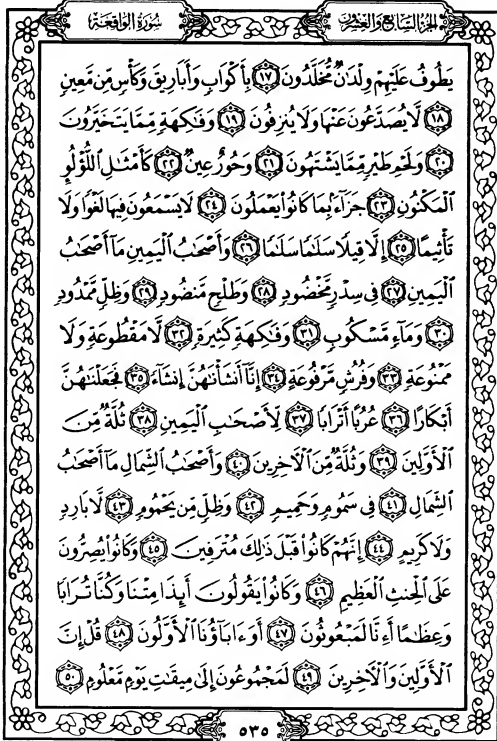 سُورَةُ الوَاقِعَةِ
الجزء السابع والعشرون
يَطُوفُ عَلَيْهِمْ وِلْدَٰنٌ مُّخَلَّدُونَ ١٧ بِأَكْوَابٍ وَأَبَارِيقَ وَكَأْسٍ مِّن مَّعِينٍ
١٨ لَّا يُصَدَّعُونَ عَنْهَا وَلَا يُنزِفُونَ ١٩ وَفَٰكِهَةٍ مِّمَّا يَتَخَيَّرُونَ
٢٠ وَلَحْمِ طَيْرٍ مِّمَّا يَشْتَهُونَ ٢١ وَحُورٌ عِينٌ ٢٢ كَأَمْثَٰلِ ٱللُّؤْلُؤِ
ٱلْمَكْنُونِ ٢٣ جَزَآءًۢ بِمَا كَانُوا۟ يَعْمَلُونَ ٢٤ لَا يَسْمَعُونَ فِيهَا لَغْوًا وَلَا
تَأْثِيمًا ٢٥ إِلَّا قِيلًا سَلَٰمًا سَلَٰمًا ٢٦ وَأَصْحَٰبُ ٱلْيَمِينِ مَآ أَصْحَٰبُ
ٱلْيَمِينِ ٢٧ فِى سِدْرٍ مَّخْضُودٍ ٢٨ وَطَلْحٍ مَّنضُودٍ ٢٩ وَظِلٍّ مَّمْدُودٍ
٣٠ وَمَآءٍ مَّسْكُوبٍ ٣١ وَفَٰكِهَةٍ كَثِيرَةٍ ٣٢ لَّا مَقْطُوعَةٍ وَلَا
مَمْنُوعَةٍ ٣٣ وَفُرُشٍ مَّرْفُوعَةٍ ٣٤ إِنَّآ أَنشَأْنَٰهُنَّ إِنشَآءً ٣٥ فَجَعَلْنَٰهُنَّ
أَبْكَارًا ٣٦ عُرُبًا أَتْرَابًا ٣٧ لِّأَصْحَٰبِ ٱلْيَمِينِ ٣٨ ثُلَّةٌ مِّنَ
ٱلْأَوَّلِينَ ٣٩ وَثُلَّةٌ مِّنَ ٱلْءَاخِرِينَ ٤٠ وَأَصْحَٰبُ ٱلشِّمَالِ مَآ أَصْحَٰبُ
ٱلشِّمَالِ ٤١ فِى سَمُومٍ وَحَمِيمٍ ٤٢ وَظِلٍّ مِّن يَحْمُومٍ ٤٣ لَّا بَارِدٍ
وَلَا كَرِيمٍ ٤٤ إِنَّهُمْ كَانُوا۟ قَبْلَ ذَٰلِكَ مُتْرَفِينَ ٤٥ وَكَانُوا۟ يُصِرُّونَ
عَلَى ٱلْحِنثِ ٱلْعَظِيمِ ٤٦ وَكَانُوا۟ يَقُولُونَ أَئِذَا مِتْنَا وَكُنَّا تُرَابًا
وَعِظَٰمًا أَءِنَّا لَمَبْعُوثُونَ ٤٧ أَوَءَابَآؤُنَا ٱلْأَوَّلُونَ ٤٨ قُلْ إِنَّ
ٱلْأَوَّلِينَ وَٱلْءَاخِرِينَ ٤٩ لَمَجْمُوعُونَ إِلَىٰ مِيقَٰتِ يَوْمٍ مَّعْلُومٍ ٥٠
٥٣٥